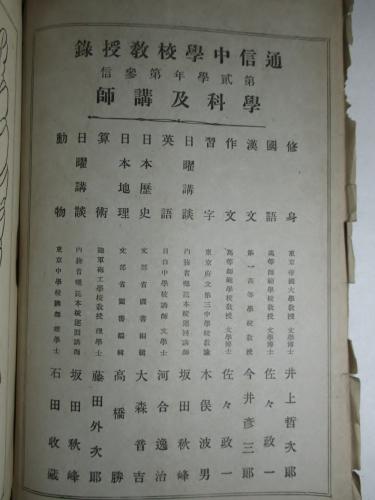 通信中學校教授錄
第貳學年第參信
學科及講師
修身 東京帝國大學教授 文學博士 井上哲次郎
國語 高等師範學校教授 文學博士 佐々政一
漢文 第一高等學校教授 今井彦三郎
作文 高等師範學校教授 文學博士 佐々政一
習字 東京府立第三中學校教諭 木俣波男
日曜講談 內務省 本 巡回講師 坂田秋峰
英語 日白中學校講師 文學士 河合逸治
日本歷史 文部省圖書編輯 大森音吉
日本地理 文部省圖書編輯 高橋勝
算術 陸軍砲工學校教授 理學士 藤田外次郎
日曜講談 內務省 本 巡回講師 坂田秋峰
動物 東京中學校講師 理學士 石田收藏